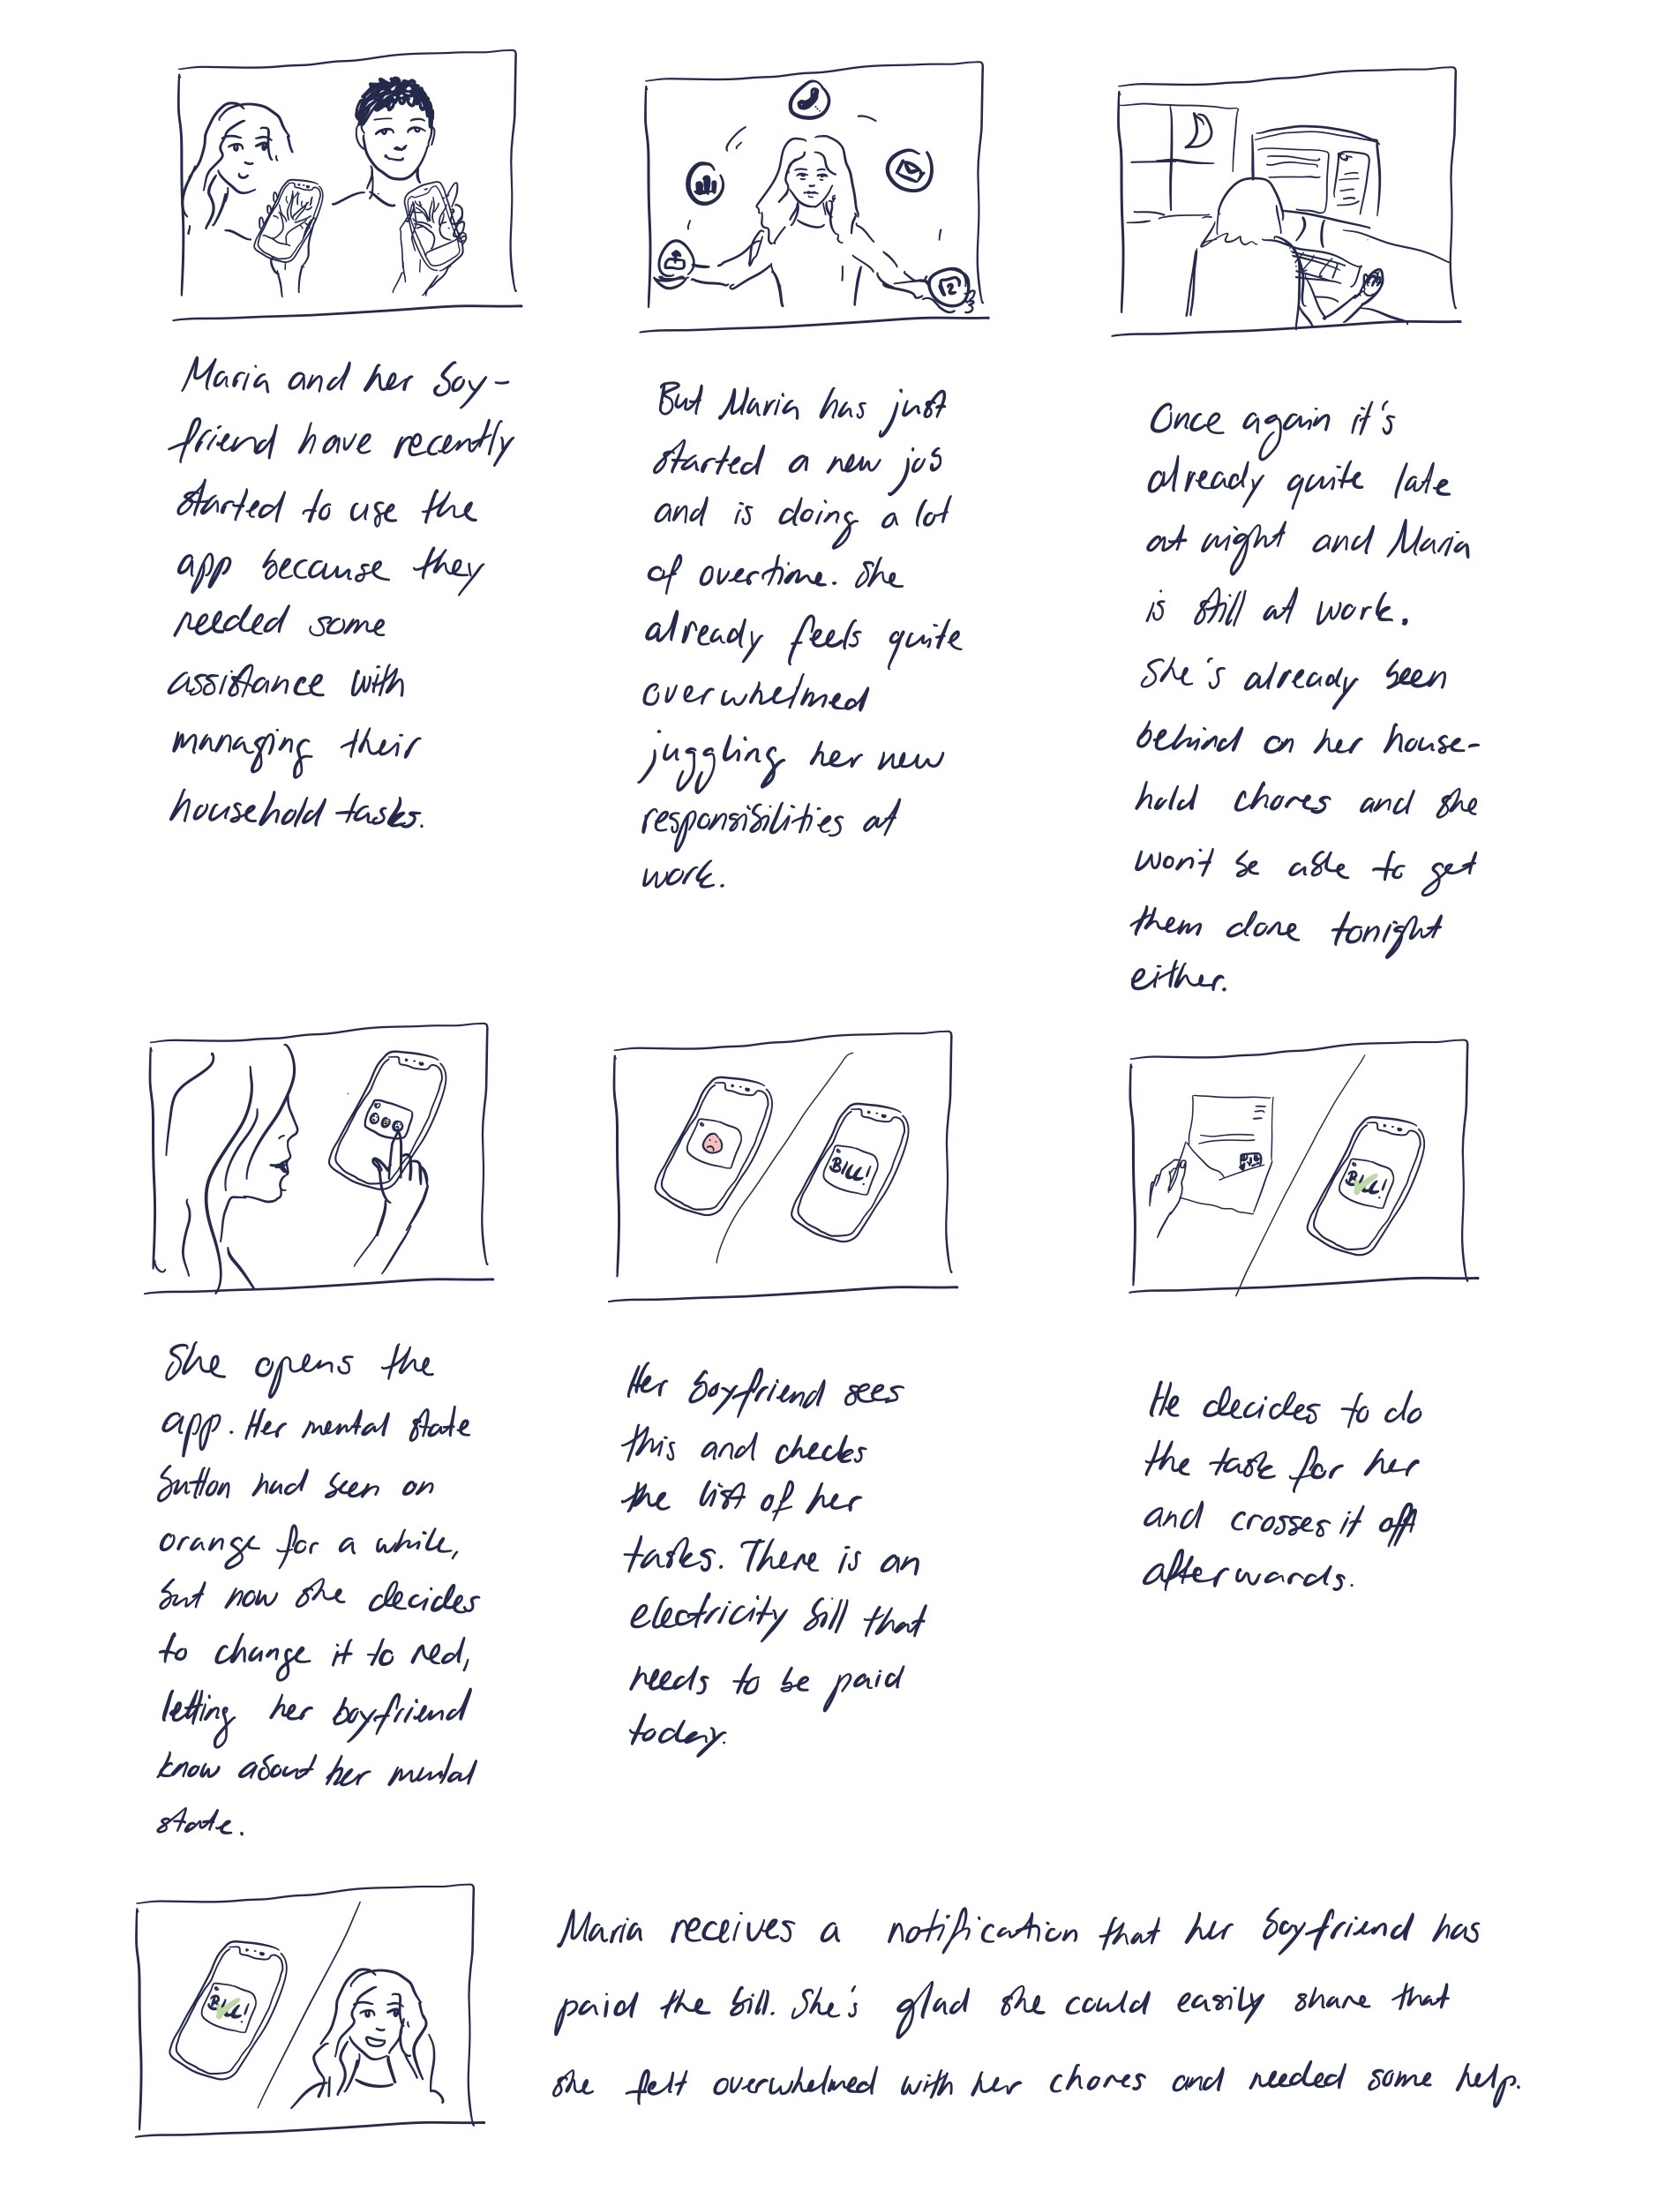 Maria and her boy-
friend have recently
started to use the
app because they
needed some
assistance with
managing their
household tasks.
12
But Maria has just
started a new job
and is doing a lot
of overtime. She
already feels quite
overwhelmed
juggling her new
responsibilities at
work.
Once again it's
already quite late
at night and Maria
is still at work.
She's already been
behind on her house-
hold chores and she
won't be able to get
them done tonight
either.
She opens the
app. Her mental state
button had been on
orange for a while,
but now she decides
to change it to red,
letting her boyfriend
know about her mental
state.
BILL!
Her boyfriend sees
this and checks
the list of her
tasks. There is an
electricity bill that
needs to be paid
today.
BILL!
He decides to do
the task for her
and crosses it off
afterwards.
BILL!
Maria receives a notification that her boyfriend has
paid the bill. She's glad she could easily share that
she felt overwhelmed with her chores and needed some help.